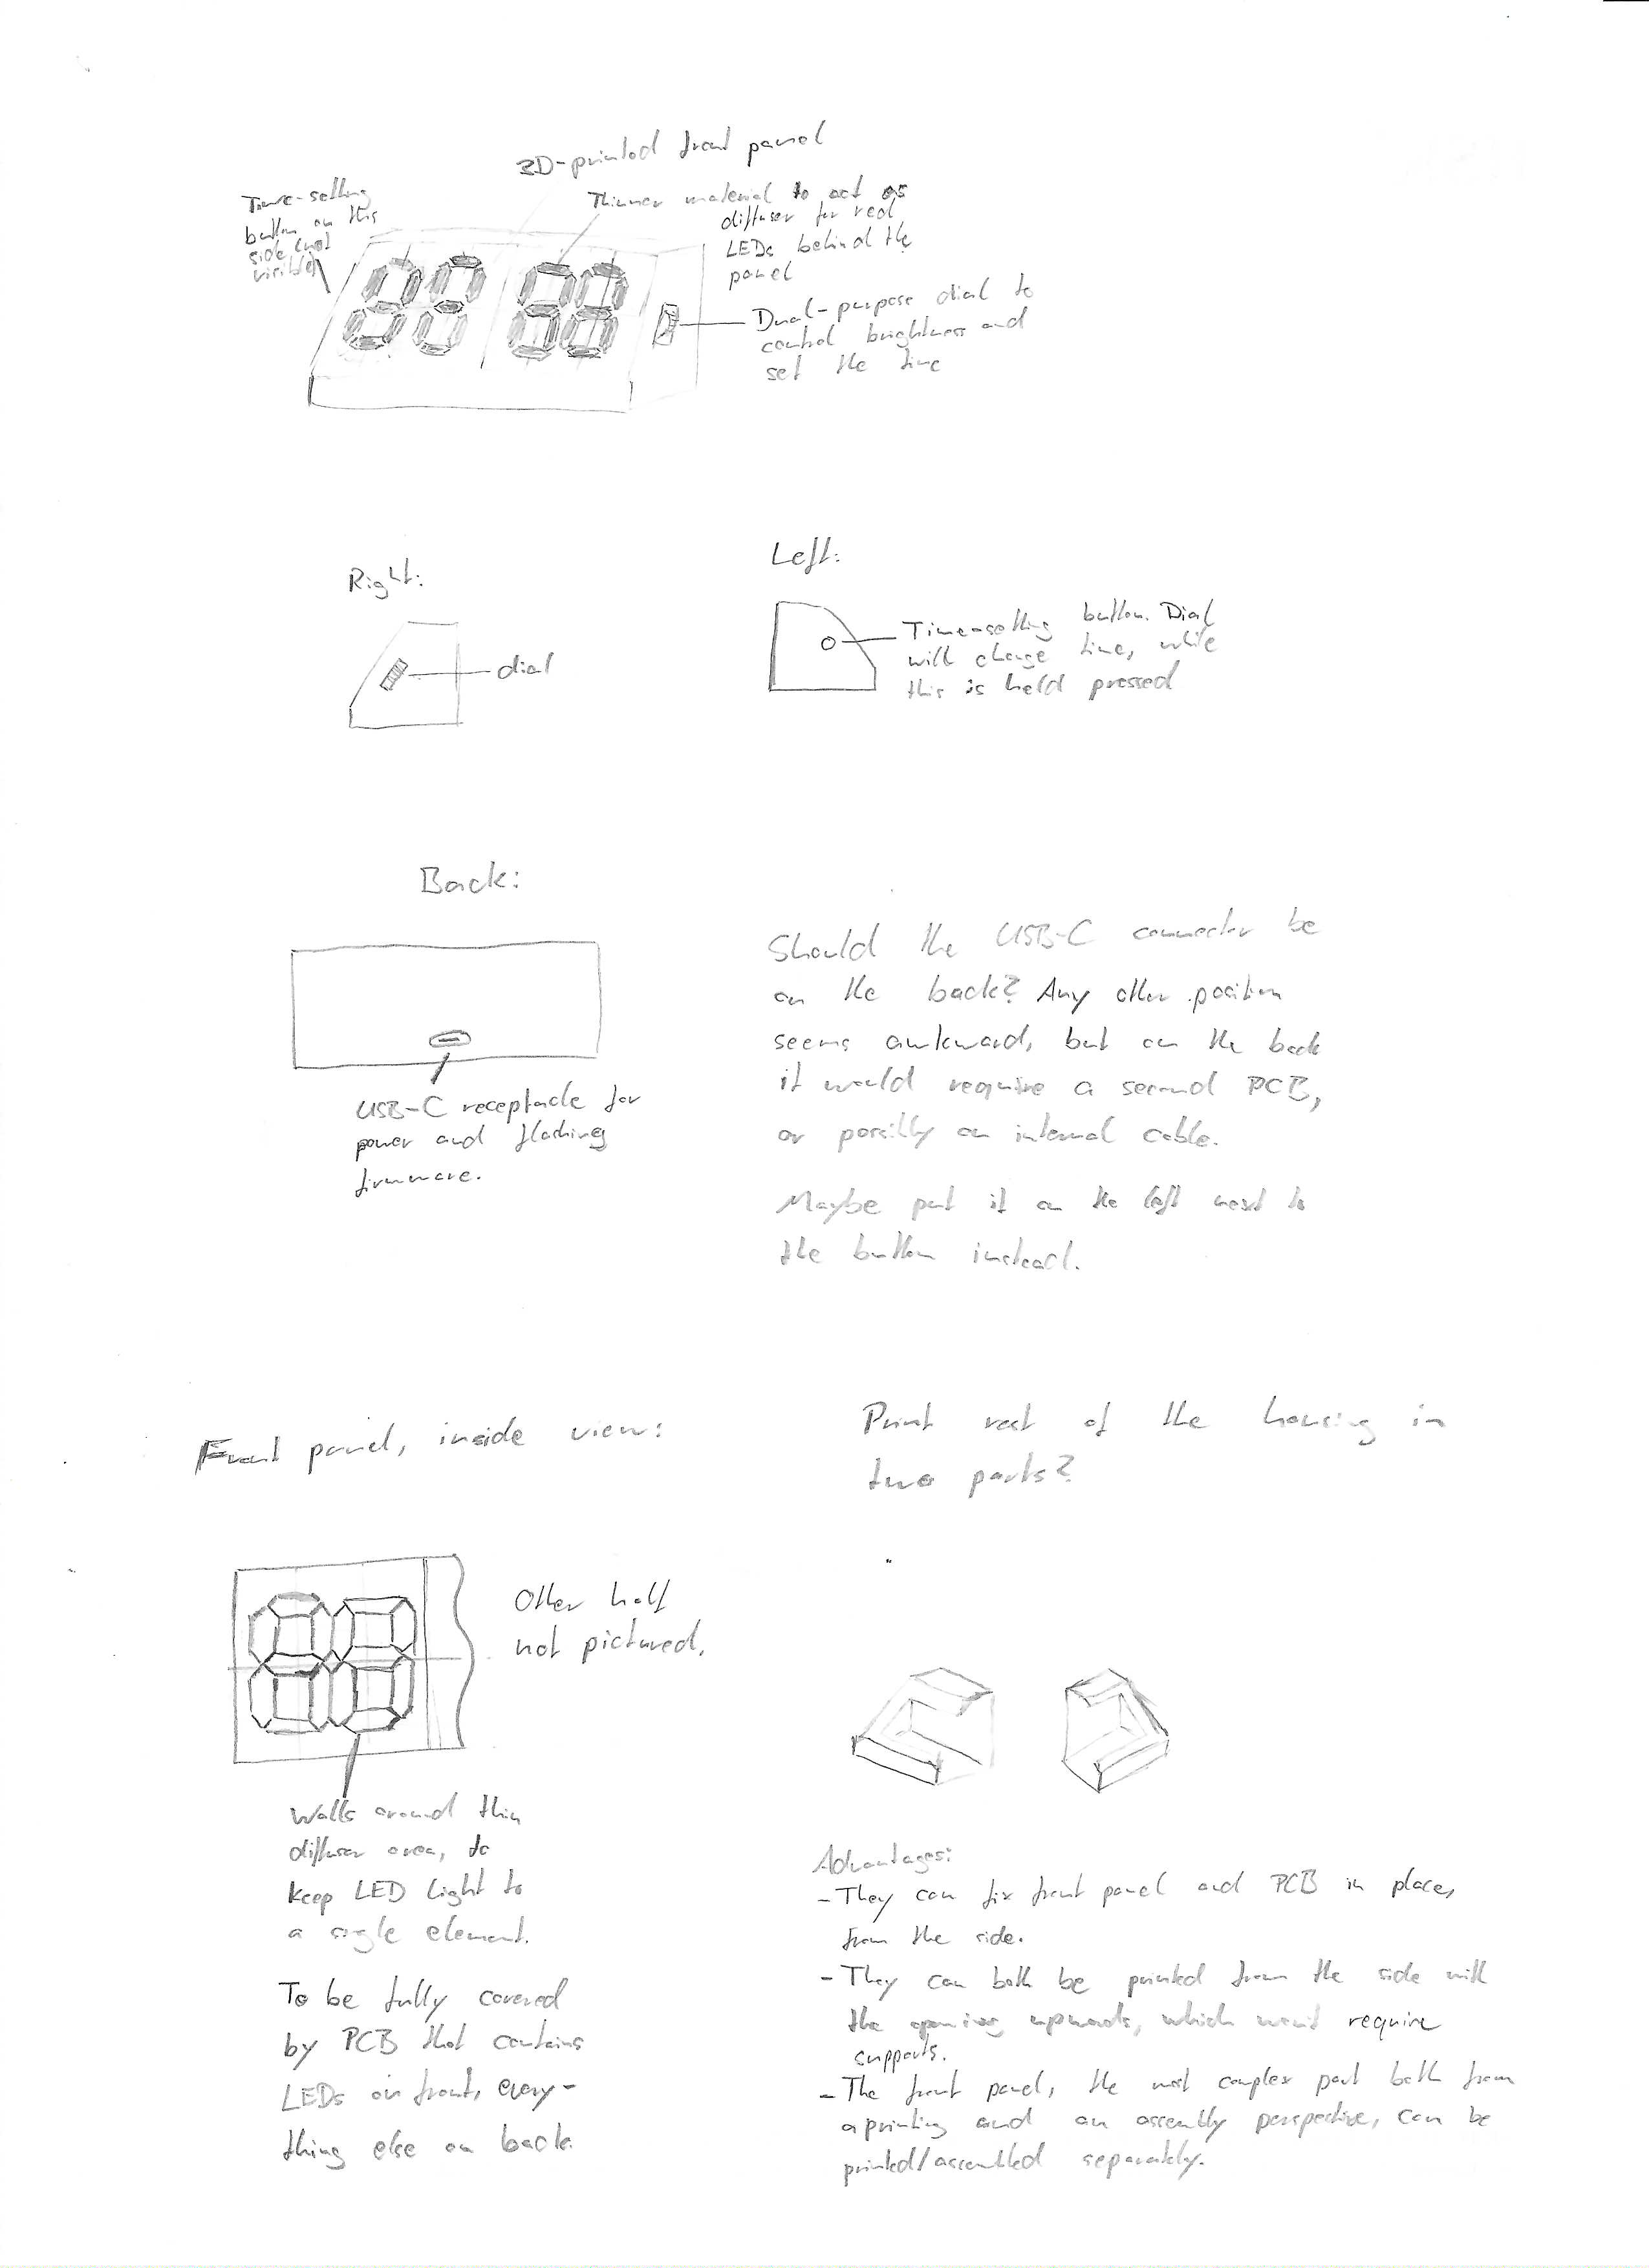 3D-printed front panel
Time-setting
button on this
side (not
visible)
Thinner material to act as
diffuser for red
LEDs behind the
panel
Dual-purpose dial to
control brightness and
set the time
Right:
dial
Left:
Time-setting button. Dial
will change time, while
this is held pressed
Back:
USB-C receptacle for
power and flashing
firmware.
Should the USB-C connector be
on the back? Any other position
seems awkward, but on the back
it would require a second PCB,
or possibly an internal cable.
Maybe put it on the left next to
the button instead.
Front panel, inside view:
Other half
not pictured.
Walls around thin
diffuser area, to
keep LED light to
a single element.
To be fully covered
by PCB that contains
LEDs on front, every-
thing else on back.
Print rest of the housing in
two parts?
Advantages:
- They can fix front panel and PCB in place,
from the side.
- They can both be printed from the side with
the opening upwards, which won't require
supports.
- The front panel, the most complex part both from
a printing and an assembly perspective, can be
printed/assembled separately.